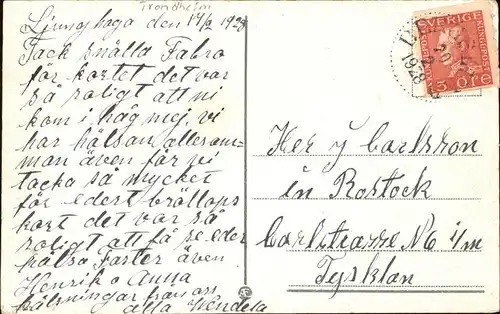 Trondheim
Ljunghaga den 17/2 1928
Tack snälla Fabro
för kortet det var
så roligt att ni
kom i håg mej, vi
har hälsan allesam-
man även får vi
tacka så mycket
för edert bröllops
kort det var så
roligt att få se eder
hälsa Faster även
Henrik o Anna
hälsningar från oss
alla Wendela
SVERIGE
15 ÖRE
1928
Her y Carlsson
in Rostock
Carlstrasse No 6 i/m
Tysklan